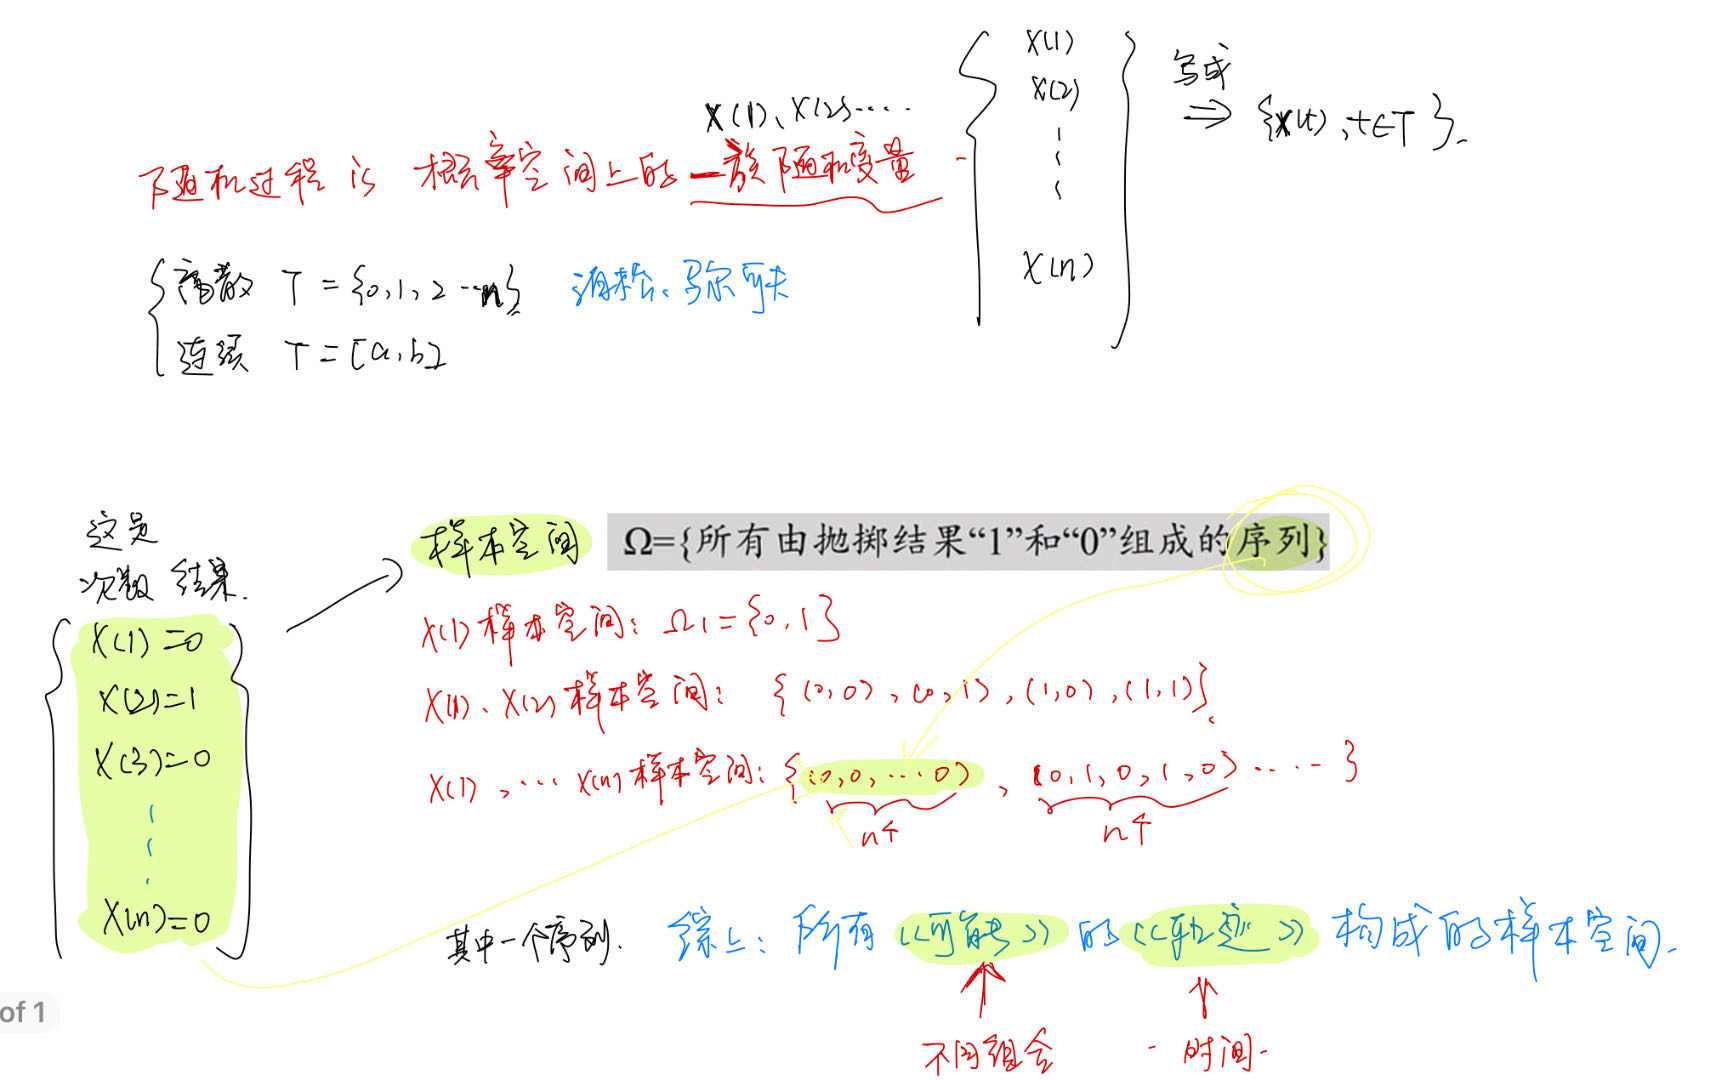 X(1)、X(2)....
X(1)
X(2)
X(n)
写成
⇒ {X(t), t∈T}.
随机过程 is 概率空间上的一族随机变量
离散 T = {0,1,2 ...n}
泊松、马尔可夫
连续 T = [a,b]
这是
次数 结果.
X(1)=0
X(2)=1
X(3)=0
X(n)=0
样本空间 Ω={所有由抛掷结果“1”和“0”组成的序列}
X(1)样本空间: Ω1={0,1}
X(1)、X(2)样本空间: {(0,0),(0,1),(1,0),(1,1)}.
X(1),...X(n)样本空间:{(0,0,...0), (0,1,0,1,0)....}
n个
n个
其中一个序列.
综上: 所有《可能》的《轨迹》构成的样本空间.
不同组合
- 时间-
of 1